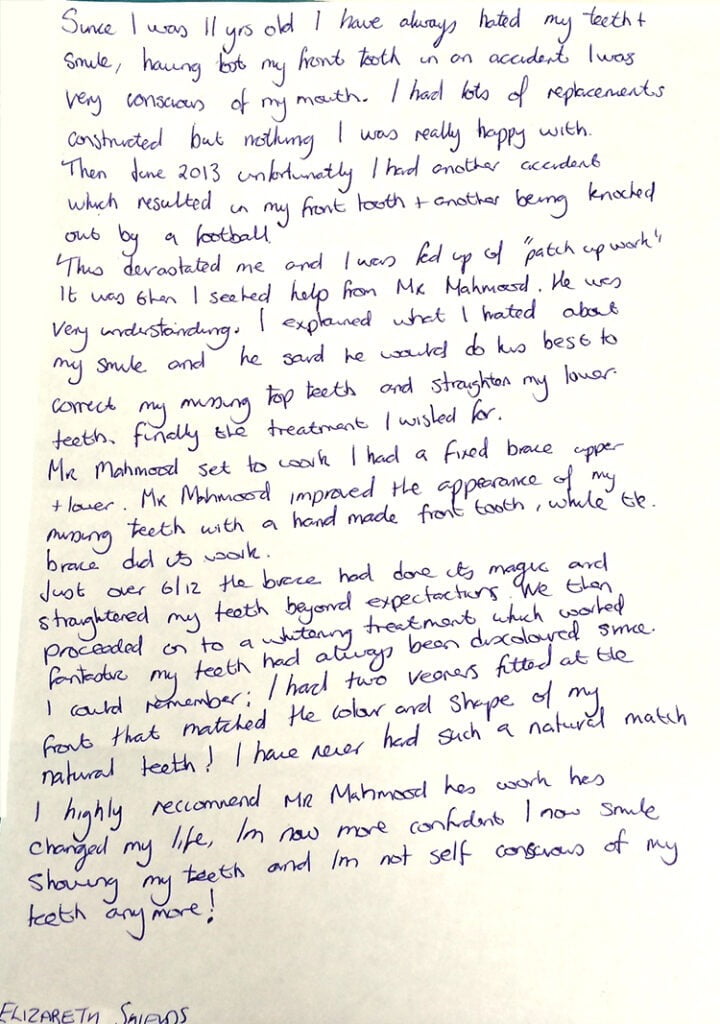 Since I was 11 yrs old I have always hated my teeth +
smile, having lost my front tooth in an accident I was
very conscious of my mouth. I had lots of replacements
constructed but nothing I was really happy with.
Then June 2013 unfortunatly I had another accident
which resulted in my front tooth + another being knocked
out by a football.
This devastated me and I was fed up of "patch up work"
It was then I seeked help from Mr Mahmood. He was
very understanding. I explained what I hated about
my smile and he said he would do his best to
correct my missing top teeth and straighten my lower
teeth. finally the treatment I wished for.
Mr Mahmood set to work I had a fixed brace upper
+ lower. Mr Mahmood improved the appearance of my
missing teeth with a hand made front tooth, while the
brace did its work.
Just over 6/12 the brace had done its magic and
straightered my teeth beyond expectactions. We then
proceeded on to a whitening treatment which worked
fantastic my teeth had always been discoloured since
I could remember; I had two veeners fitted at the
front that matched the colour and shape of my
natural teeth! I have never had such a natural match
I highly reccomnend Mr Mahmood hes work hes
changed my life, Im now more confident I now smile
showing my teeth and Im not self conscious of my
teeth anymore!
ELIZABETH SHIELDS